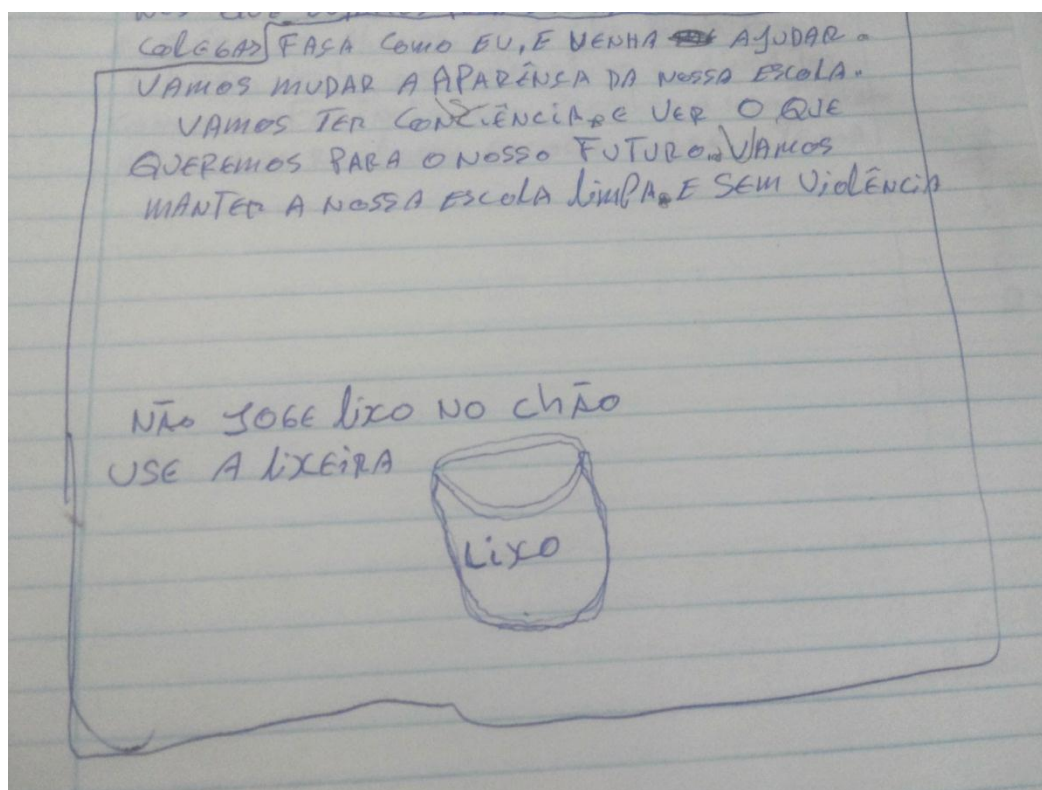 COLEGAS FAÇA COMO EU, E VENHA AJUDAR.
VAMOS MUDAR A APARÊNCA DA NOSSA ESCOLA.
VAMOS TER CONCIÊNCIA, E VER O QUE
QUEREMOS PARA O NOSSO FUTURO. VAMOS
MANTER A NOSSA ESCOLA limPA, E SEM ViOlÊNCiA
NÃO JOGE lixo NO chÃO
USE A liXEiRA
Lixo